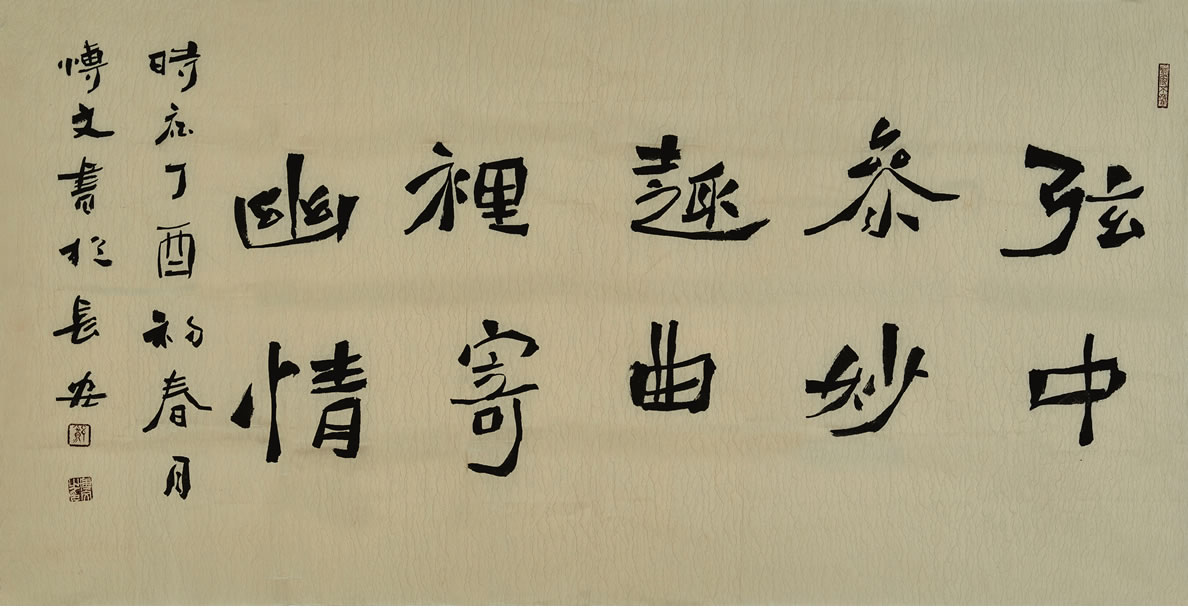 弦中
参妙
趣曲
裡寄
幽情
時在丁酉初春月
博文書於長安